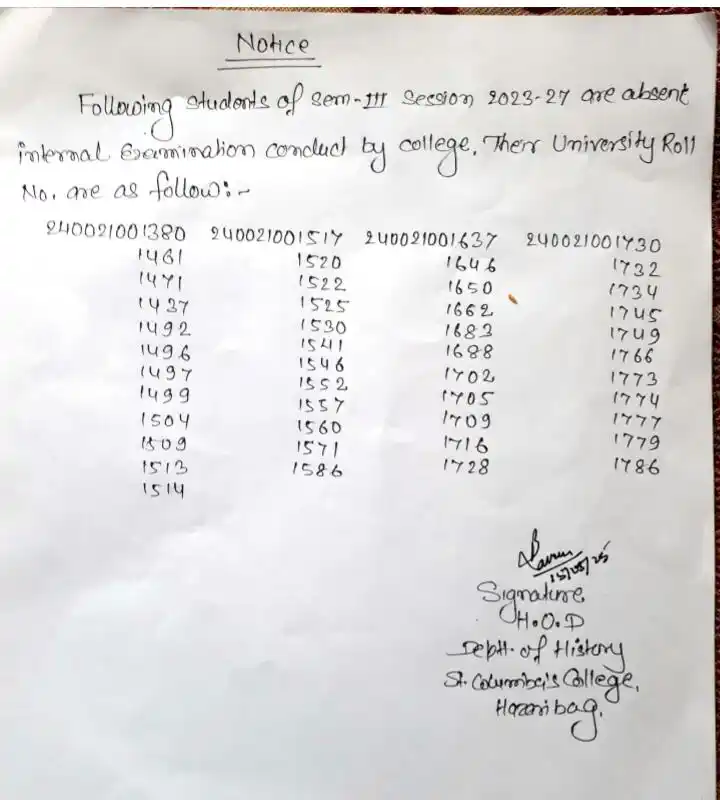 Notice
Following students of sem-III Session 2023-27 are absent
internal Examination conduct by college. Their University Roll
No. are as follow:-
240021001380 240021001517 240021001637 240021001730
1461 1520 1646 1732
1471 1522 1650 1734
1437 1525 1662 1745
1492 1530 1683 1749
1496 1541 1688 1766
1497 1546 1702 1773
1499 1552 1705 1774
1504 1557 1709 1777
1509 1560 1716 1779
1513 1571 1728 1786
1514 1586
15/05/25
Signature
H.O.D
Deptt. of History
St. Columba's College,
Hazaribag.